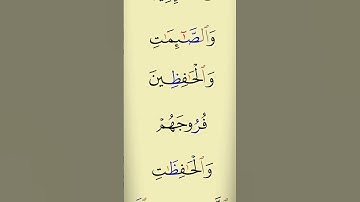 وَٱلصَّٰٓئِمَٰتِ
وَٱلْحَٰفِظِينَ
فُرُوجَهُمْ
وَٱلْحَٰفِظَٰتِ